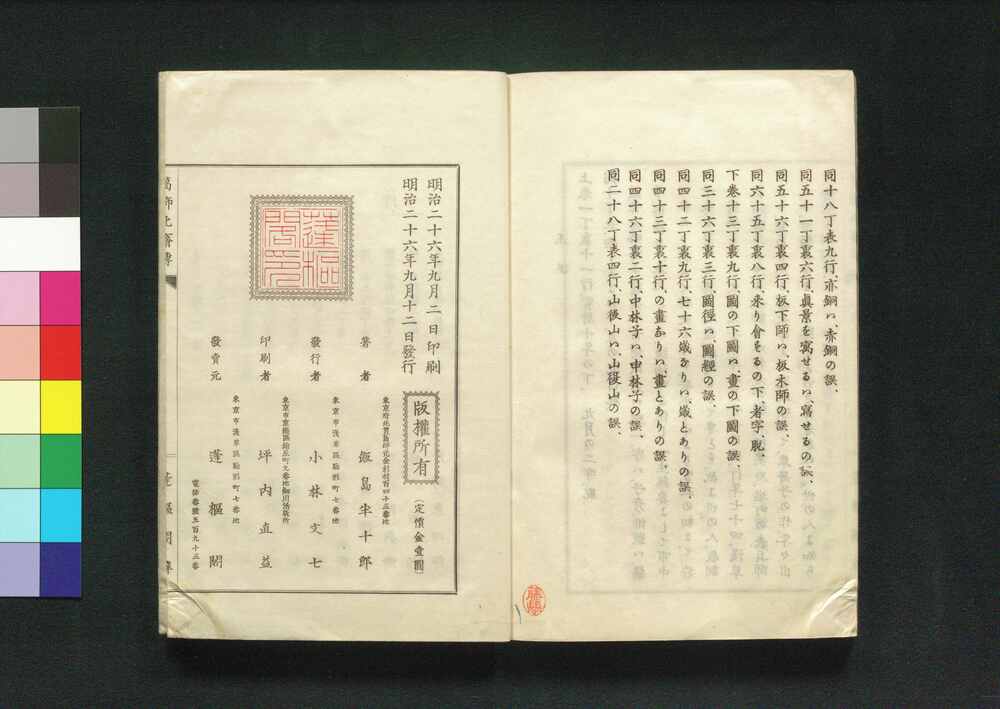 同十八丁表九行、亦銅ハ、赤銅の誤、
同五十一丁裏六行、眞景を寫せるハ、寫せるの誤、
同五十六丁裏四行、板下師ハ、板木師の誤、
同六十五丁裏八行、來り會をるの下、者字、脱、
下卷十三丁裏九行、圖の下圖ハ、畫の下圖の誤、
同三十六丁裏三行、圖徑ハ、圖經の誤、
同四十二丁裏九行、七十六
同四十三丁裏十行、の畫なりハ、畫とありの誤、
同四十六丁裏二行、中林子ハ、申林子の誤、
同二十八丁表四行、山後山ハ、山復山の誤、
明治二十六年九月二日印刷
明治二十六年九月十二日發行
版權所有
(定價金壹圓)
著者
飯島半十郎
發行者
東京市淺草區駒形町七番地
小林文七
印刷者
坪内直益
發賣元
東京市淺草區駒形町七番地
蓬樞閣
電話番號五百九十三番
蓬樞閣印